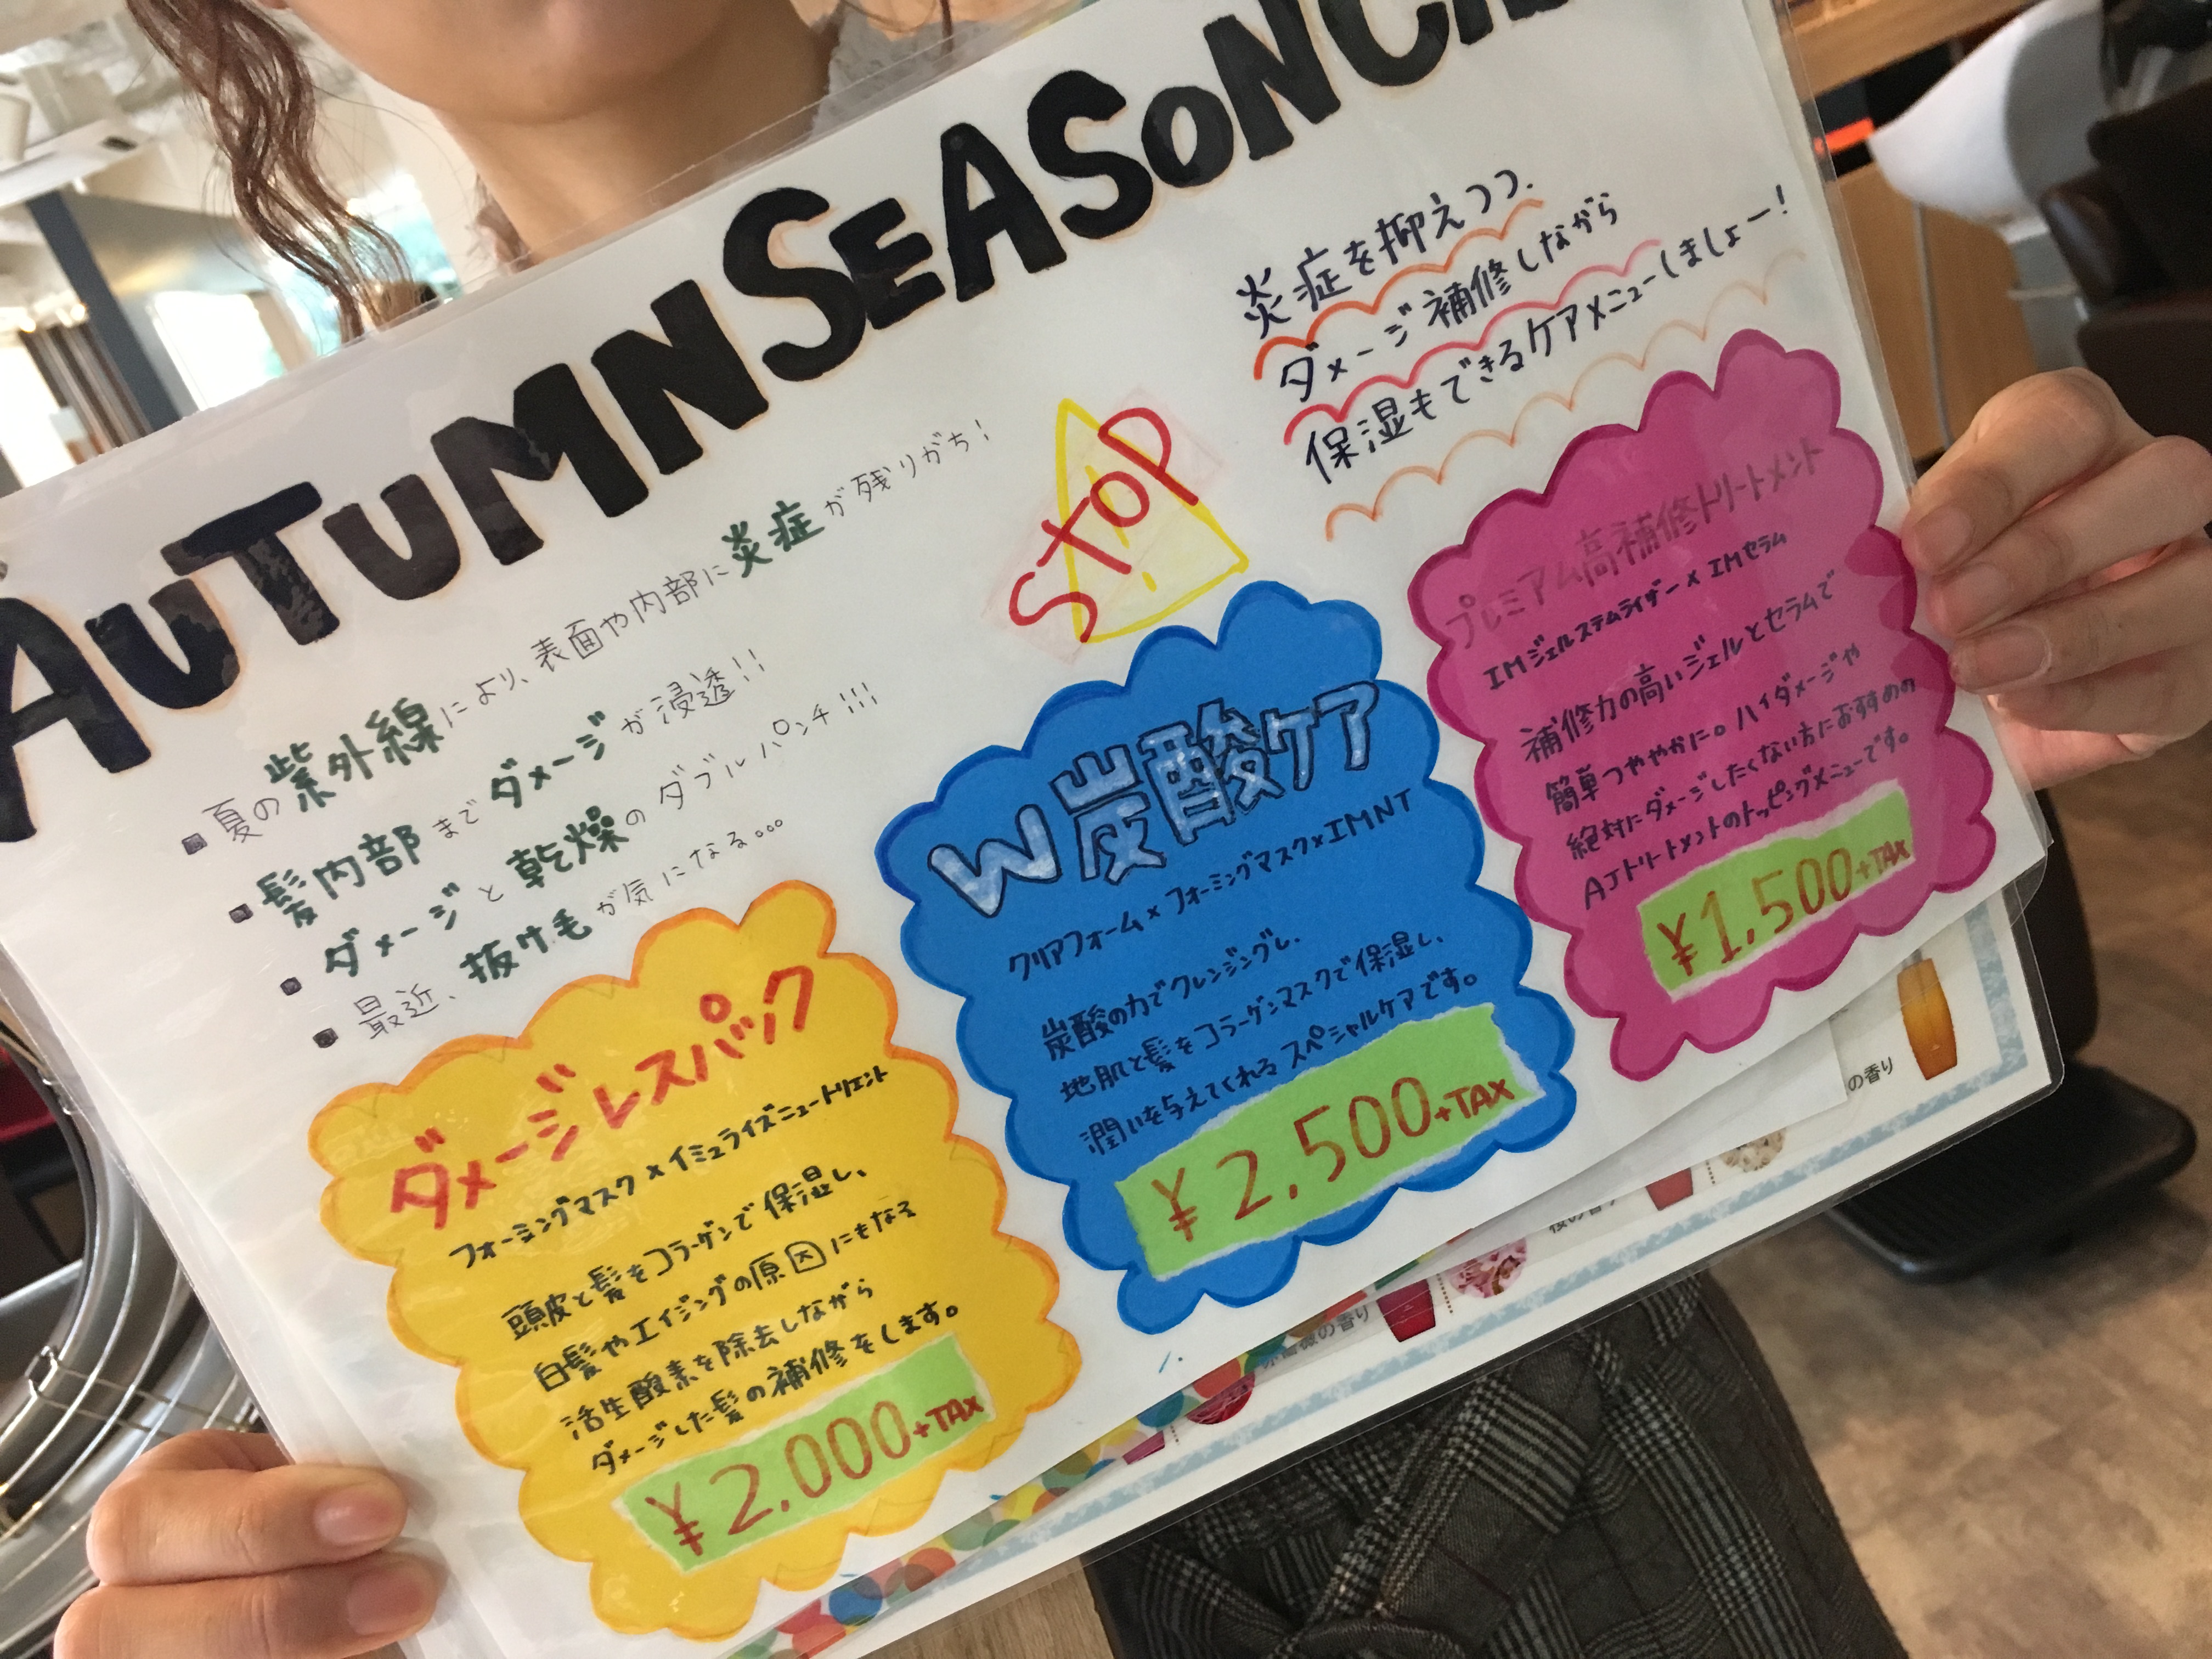 AUTUMN SEASON
・夏の紫外線により、表面や内部に炎症が残りがち!
・髪内部までダメージが浸透!!
・ダメージと乾燥のダブルパンチ!!!
・最近、抜け毛が気になる…
STOP
炎症を抑えつつ、
ダメージ補修しながら
保湿もできるケアメニューしましょー!
ダメージレスパック
フォーミングマスク×イミュライズニュートリエント
頭皮と髪をコラーゲンで保湿し、
白髪やエイジングの原因にもなる
活生酸素を除去しながら
ダメージした髪の補修をします。
¥2,000+TAX
W炭酸ケア
クリアフォーム×フォーミングマスク×IMNT
炭酸の力でクレンジングし、
地肌と髪をコラーゲンマスクで保湿し、
潤いを与えてくれるスペシャルケアです。
¥2,500+TAX
プレミアム高補修トリートメント
IMジェルステムライザー×IMセラム
補修力の高いジェルとセラムで
簡単つややかに。ハイダメージや
絶対にダメージしたくない方におすすめの
AJトリートメントのトッピングメニューです。
¥1,500+TAX
の香り
の香り